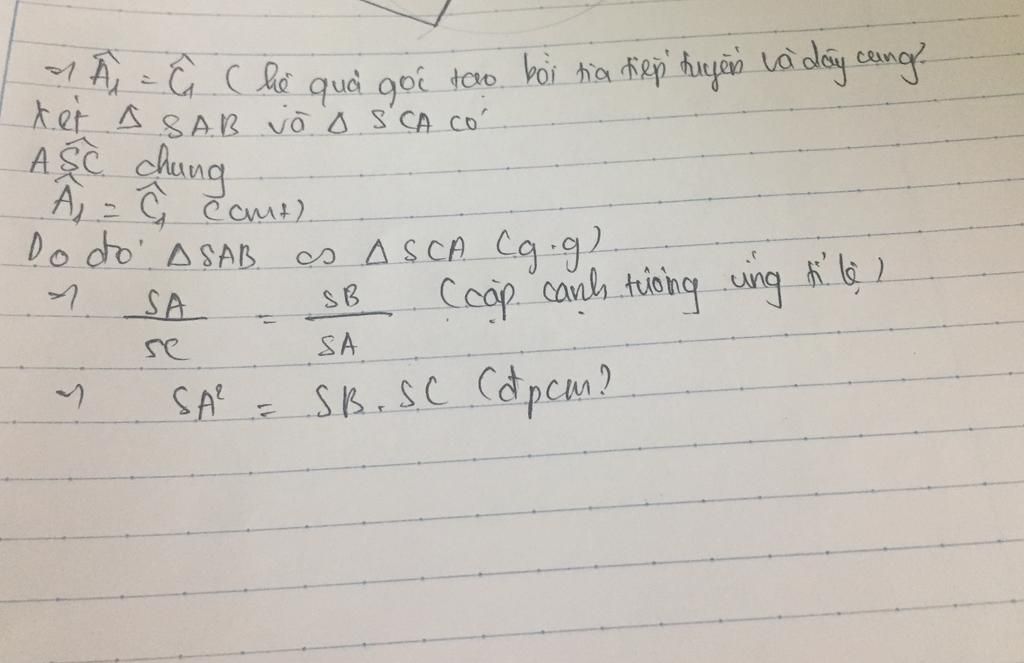 → Â₁ = Ĉ₁ (hệ quả góc tạo bởi tia tiếp tuyến và dây cung)
Xét Δ SAB và Δ SCA có
AŜC chung
Â₁ = Ĉ₁ (cmt)
Do đó ΔSAB ∽ ΔSCA (g.g)
→ SA/SC = SB/SA (cặp cạnh tương ứng tỉ lệ)
→ SA² = SB.SC (đpcm)